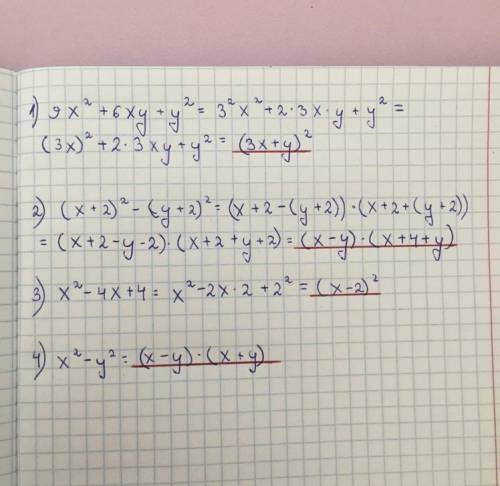 1) 9x² + 6xy + y² = 3²x² + 2·3x·y + y² =
(3x)² + 2·3xy + y² = (3x+y)²
2) (x+2)² - (y+2)² = (x+2-(y+2))·(x+2+(y+2))
= (x+2-y-2)·(x+2+y+2) = (x-y)·(x+4+y)
3) x² - 4x + 4 = x² - 2x·2 + 2² = (x-2)²
4) x² - y² = (x-y)·(x+y)